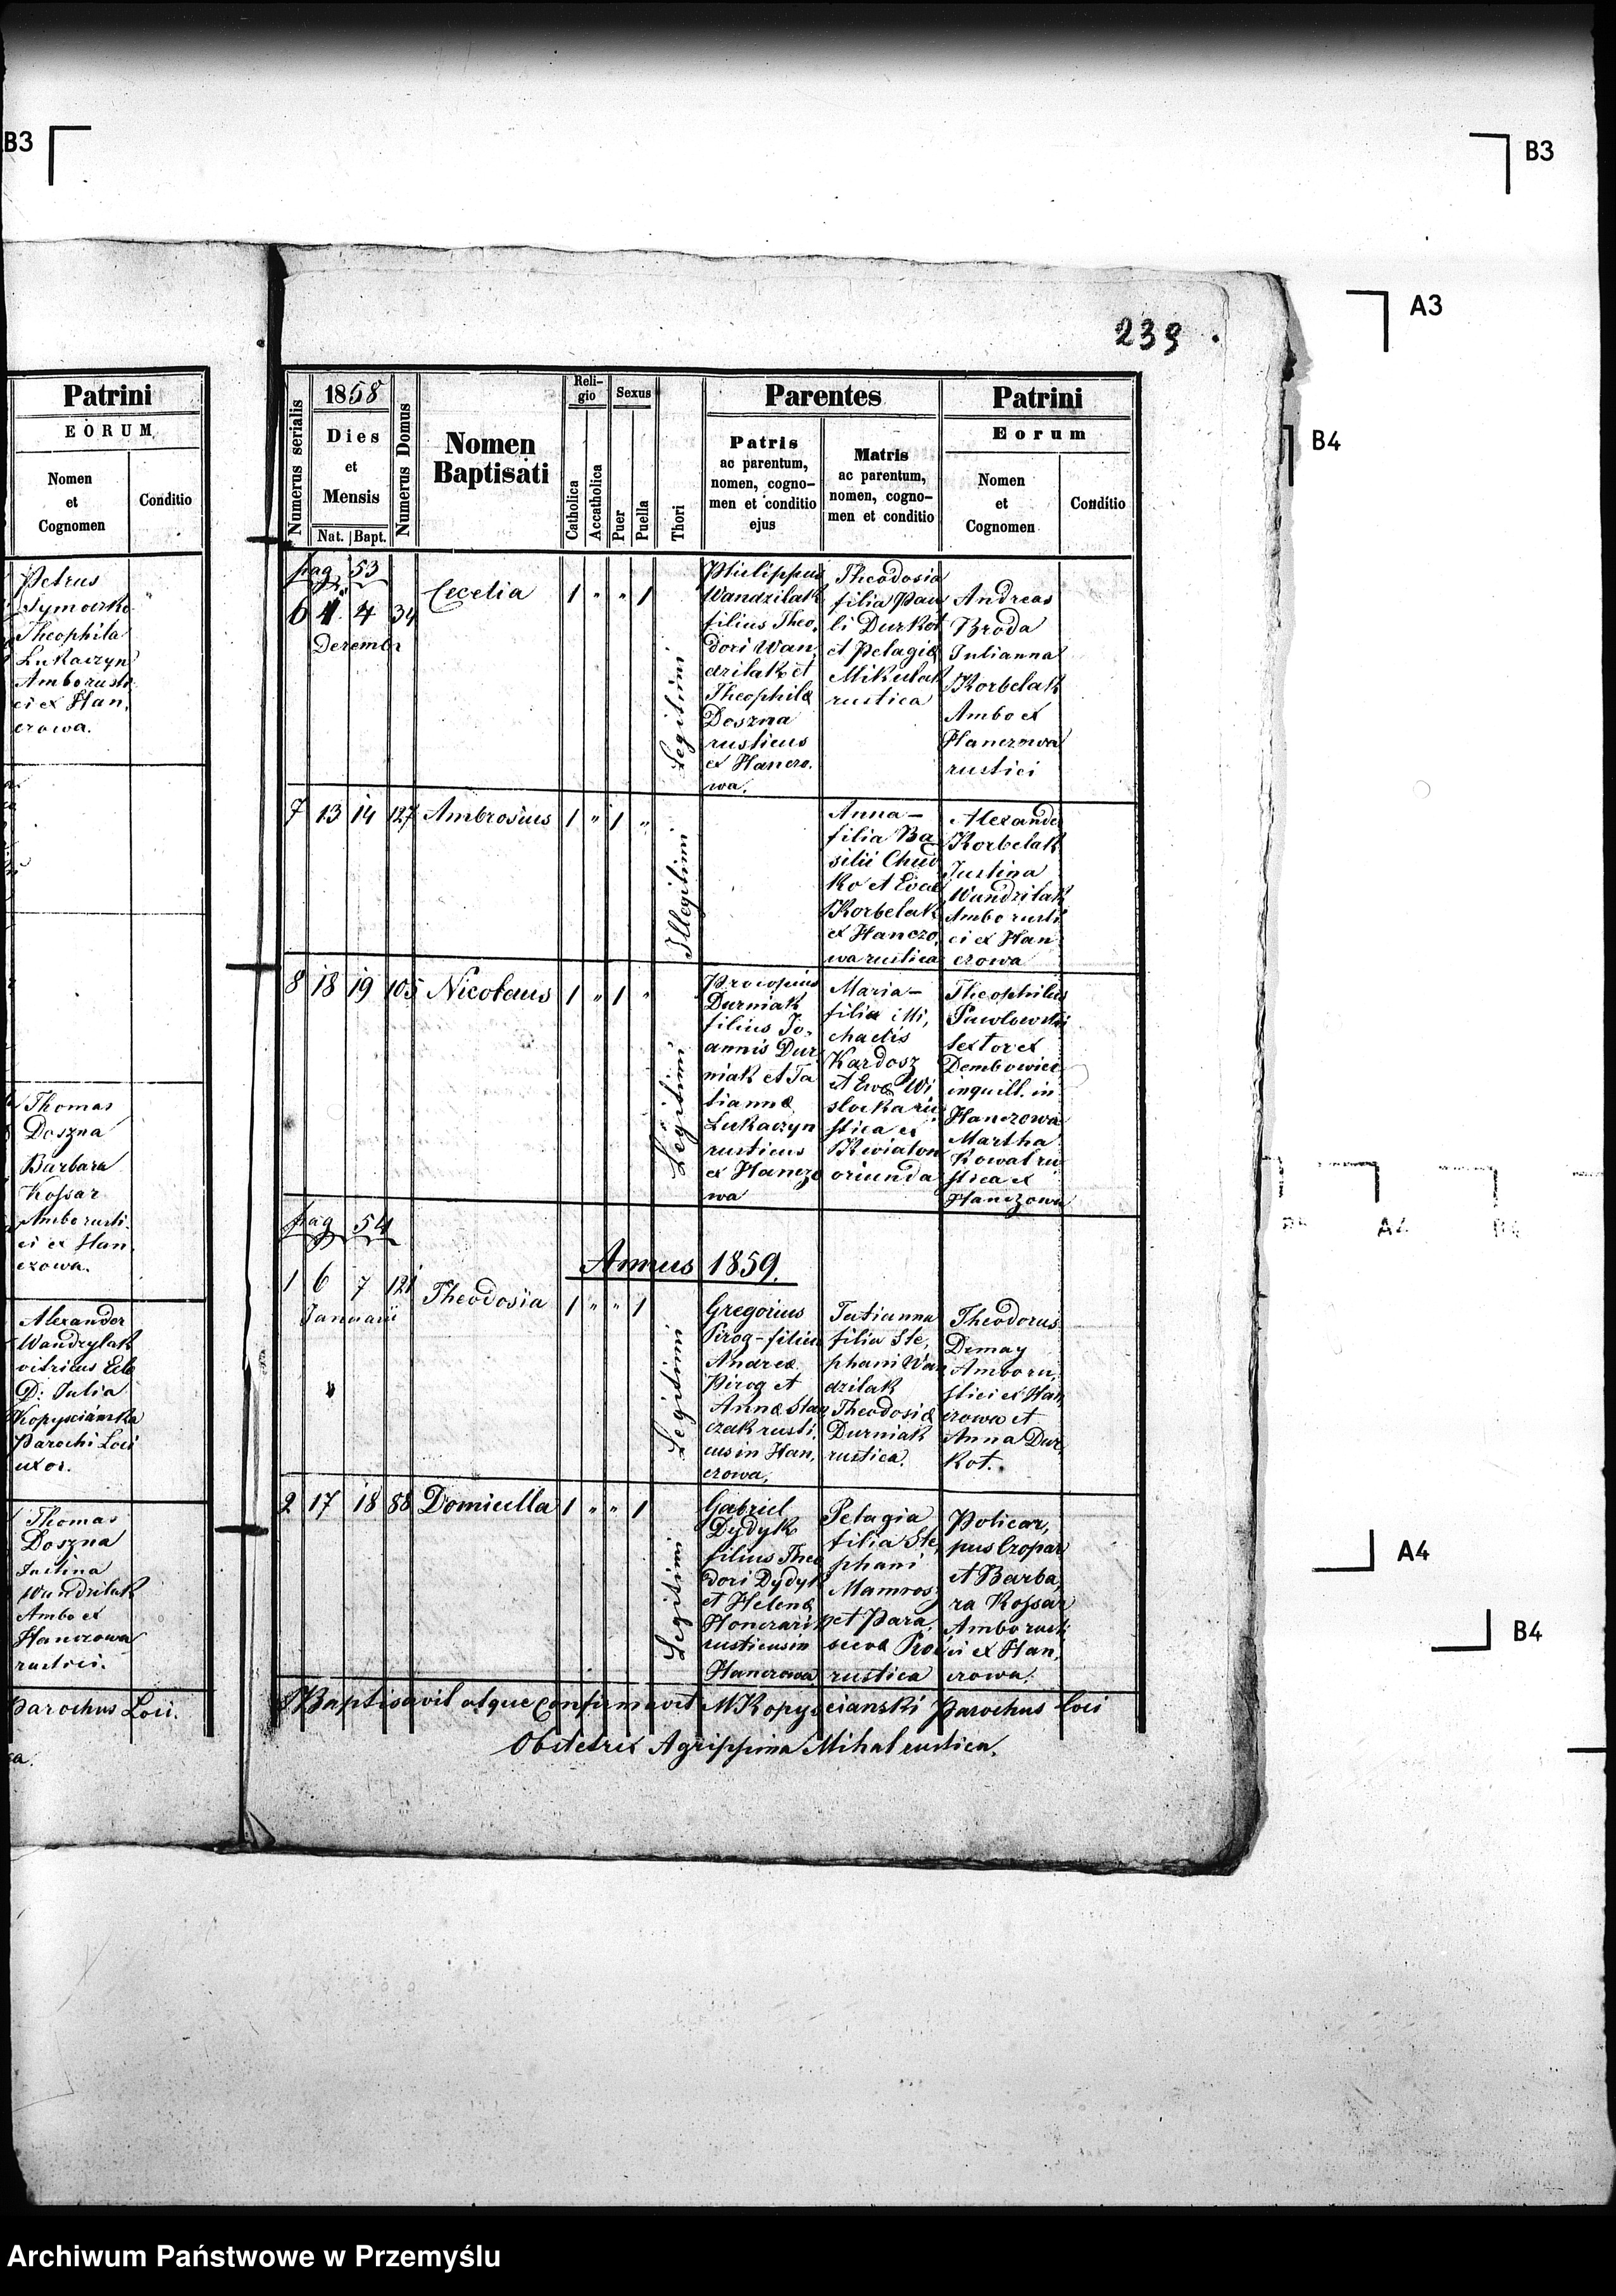 B3
B3
A3
B4
A4
B4
239
Patrini
EORUM
Nomen
et
Cognomen
Conditio
Petrus
Symoczko
Theophila
Lukaczyn
Ambo rusti
ci ex Han,
czowa.
Thomas
Doszna
Barbara
Kossar
Ambo rusti
ci ex Han,
czowa.
Alexander
Wandzylak
vitricus Eccl
D: Julia
Kopyscianska
Parochi Loci
uxor.
Thomas
Doszna
Justina
Wandzilak
Ambo ex
Hanczowa
rustici.
Parochus Loci.
Numerus serialis
1858
Dies
et
Mensis
Nat. Bapt.
Numerus Domus
Nomen
Baptisati
Reli-
gio
Catholica
Accatholica
Sexus
Puer
Puella
Thori
Parentes
Patris
ac parentum,
nomen, cogno-
men et conditio
ejus
Matris
ac parentum,
nomen, cogno-
men et conditio
Patrini
Eorum
Nomen
et
Cognomen
Conditio
pag 53
6 4 34
Decembr
Cecelia
1 " " 1
Legitimi
Philippus
Wandzilak
filius Theo,
dori Wan,
dzilak et
Theophilæ
Doszna
rusticus
ex Hanczo,
wa.
Theodosia
filia Pau
li Durkot
et Pelagiæ
Mikulak
rustica
Andreas
Broda
Julianna
Korbelak
Ambo ex
Hanczowa
rustici
7 13 14 127 Ambrosius 1 " 1 "
Illegitimi
Anna -
filia Ba
silii Chud
ko et Evæ
Korbelak
ex Hanczo,
wa rustica
Alexander
Korbelak
Justina
Wandzilak
Ambo rusti
ci ex Han
czowa
8 18 19 105 Nicolaus 1 " 1 "
Legitimi
Procopius
Durniak
filius Jo,
annis Dur
niak et Ta
tiannæ
Lukaczyn
rusticus
ex Hanczo
wa
Maria -
filia Mi,
chaelis
Kardosz
et Evæ Wi
slocka ru
stica ex
Kwiaton
oriunda
Theophilus
Pawlowski
sextor ex
Dembowiec
inquil. in
Hanczowa
Martha
Kowal ru
stica ex
Hanczowa
pag 54
Annus 1859.
1 6 7 121
Januarii
Theodosia
1 " " 1
Legitimi
Gregorius
Pirog - filius
Andreæ
Pirog et
Annæ Stan
czak rusti,
cus in Han,
czowa,
Tatianna
filia Ste,
phani Wan
dzilak
Theodosiæ
Durniak
rustica.
Theodorus
Dzmay
Ambo ru,
stici ex Han
czowa et
Anna Dur,
kot.
2 17 18 88 Domicella 1 " " 1
Legitimi
Gabriel
Dydyk
filius Theo
dori Dydyk
et Helenæ
Honczarik
rusticus in
Hanczowa
Pelagia
filia Ste,
phani
Mamrosz
et Para,
scevæ
rustica
Policar,
pus Czopar
et Barba,
ra Kossar
Ambo rusti
ci ex Han,
czowa.
Baptisavit atque confirmavit M Kopyscianski Parochus loci
Obstetrix Agrippina Mihal rustica.
Archiwum Państwowe w Przemyślu